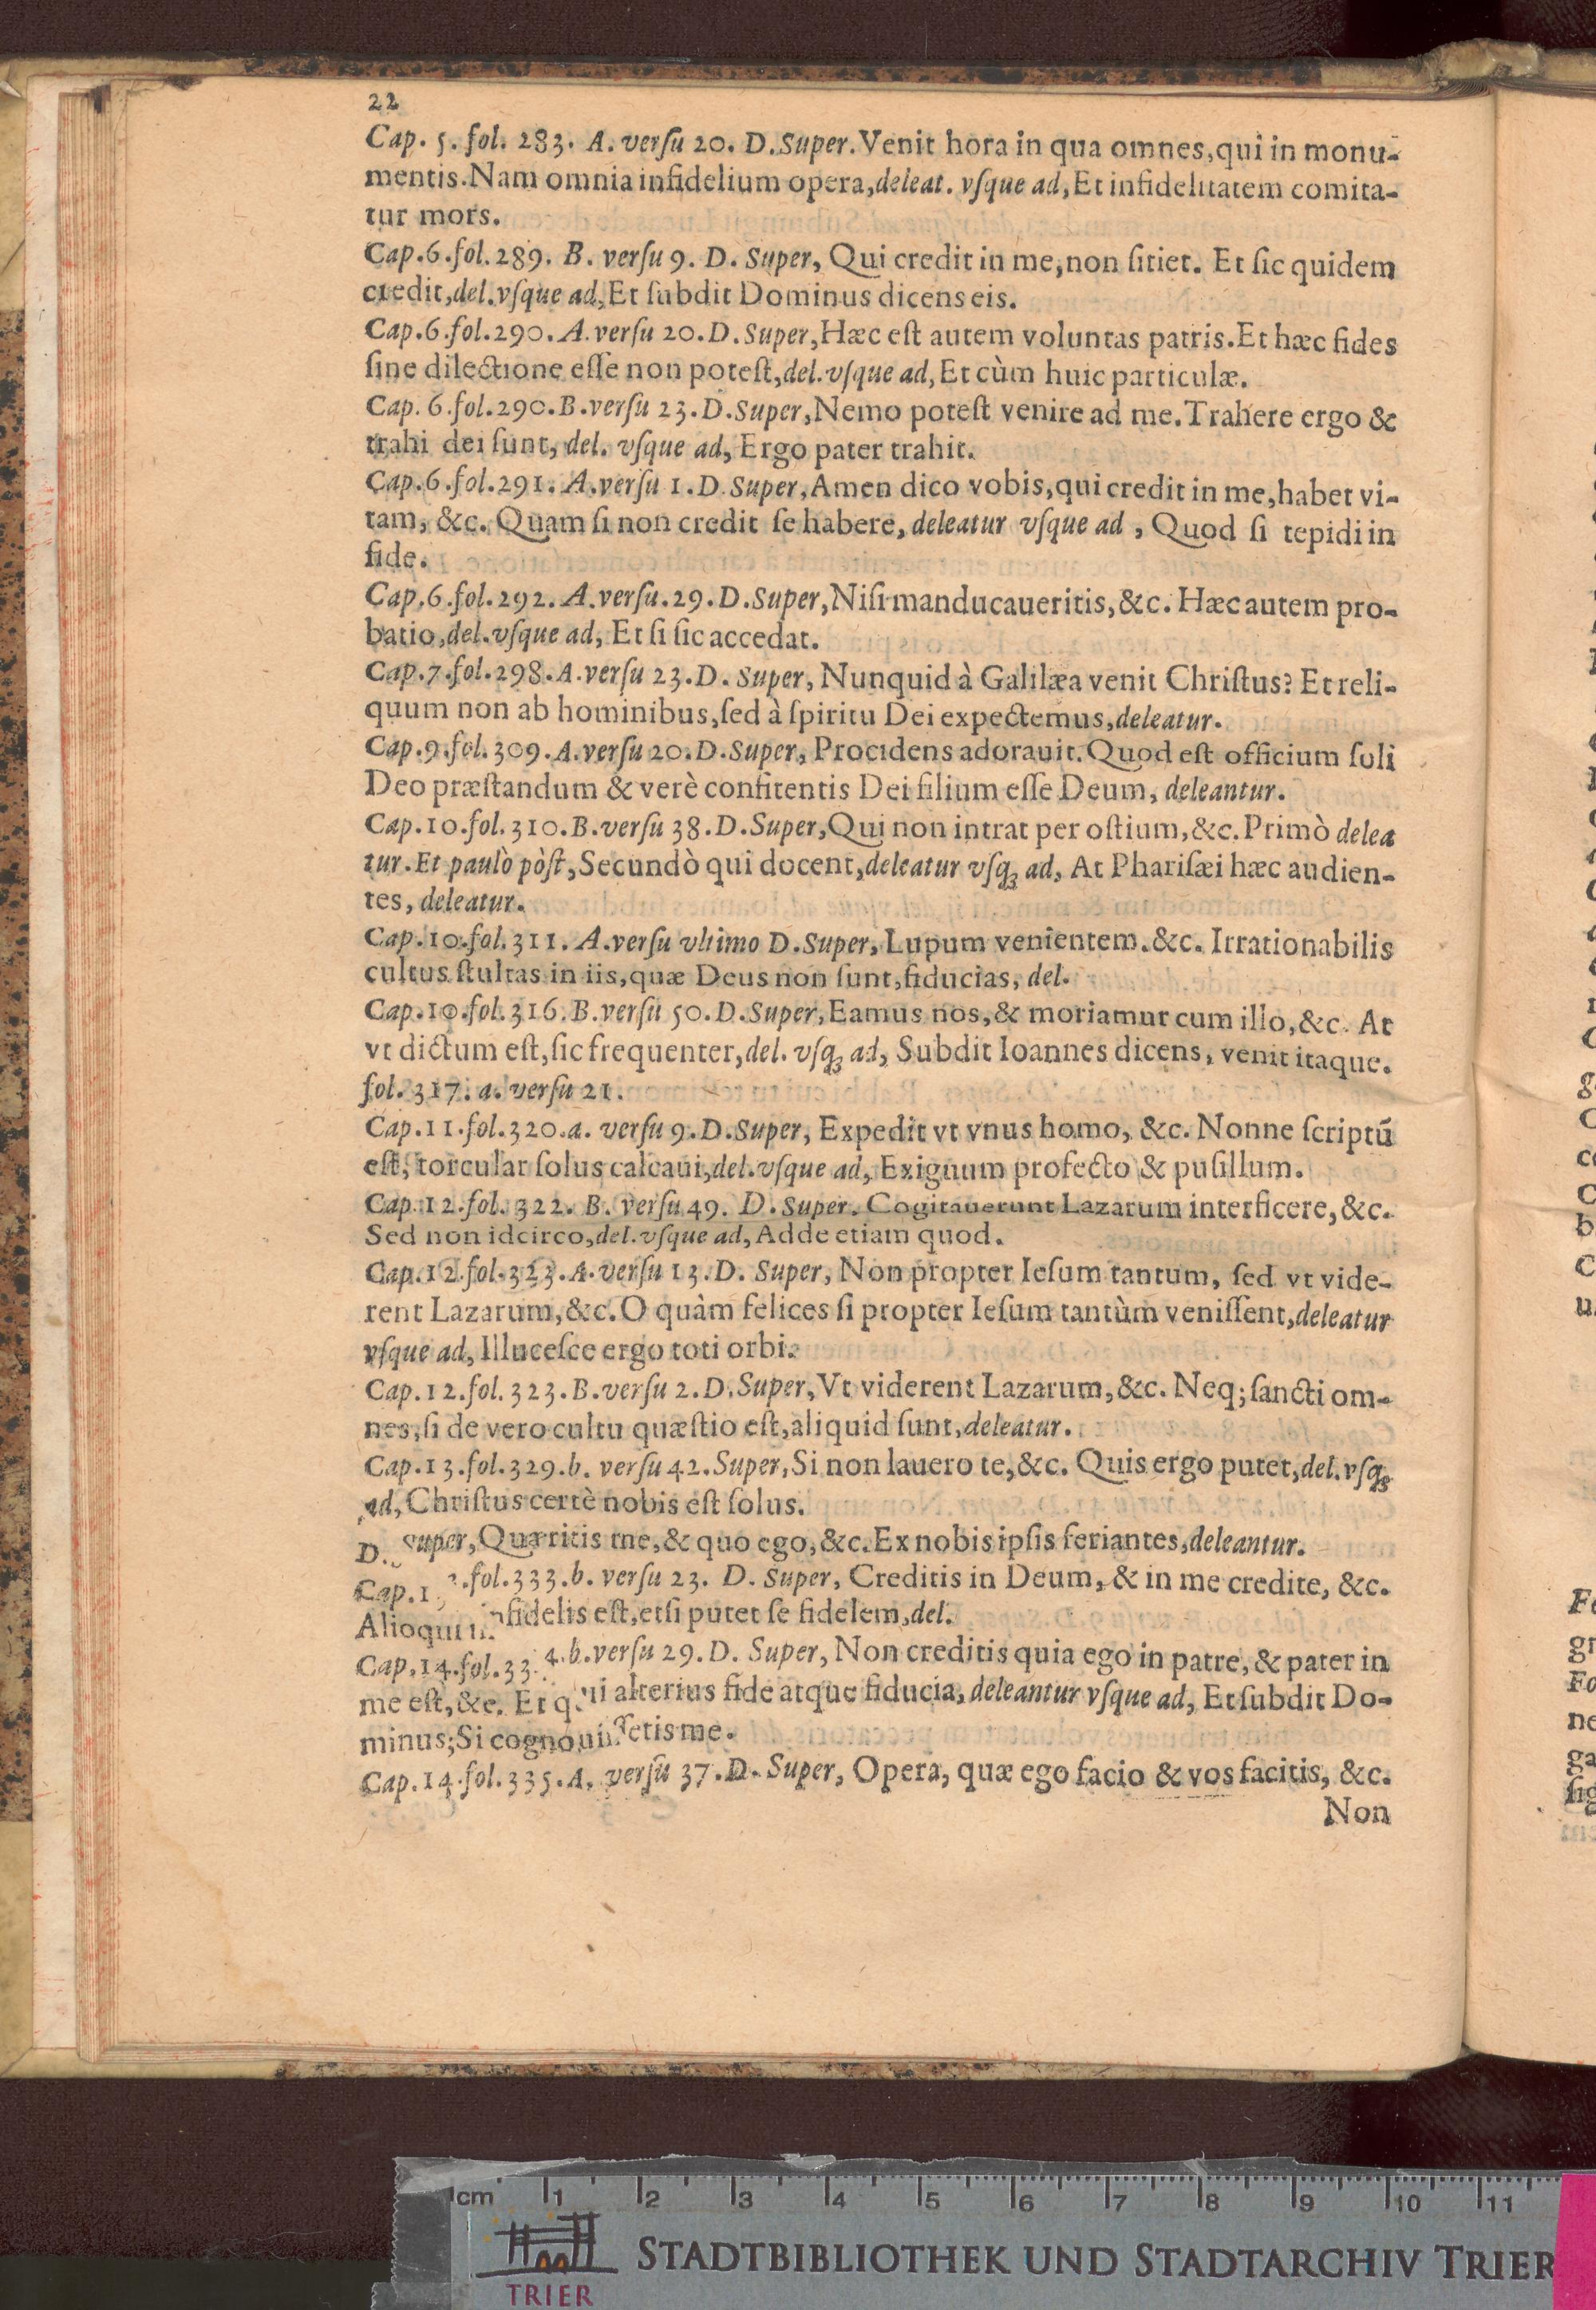 22
Cap. 5. fol. 283. A. verſu 20. D. Super. Venit hora in qua omnes, qui in monu-
mentis. Nam omnia infidelium opera, deleat. vſque ad, Et infidelitatem comita-
tur mors.
Cap. 6. fol. 289. B. verſu 9. D. Super, Qui credit in me, non ſitiet. Et ſic quidem
credit, del. vſque ad, Et ſubdit Dominus dicens eis.
Cap. 6. fol. 290. A. verſu 20. D. Super, Hæc eſt autem voluntas patris. Et hæc fides
ſine dilectione eſſe non poteſt, del. vſque ad, Et cùm huic particulæ.
Cap. 6. fol. 290. B. verſu 23. D. Super, Nemo poteſt venire ad me. Trahere ergo &
trahi dei ſunt, del. vſque ad, Ergo pater trahit.
Cap. 6. fol. 291. A. verſu 1. D. Super, Amen dico vobis, qui credit in me, habet vi-
tam, &c. Quam ſi non credit ſe habere, deleatur vſque ad, Quod ſi tepidi in
fide.
Cap. 6. fol. 292. A. verſu. 29. D. Super, Niſi manducaueritis, &c. Hæc autem pro-
batio, del. vſque ad, Et ſi ſic accedat.
Cap. 7. fol. 298. A. verſu 23. D. Super, Nunquid à Galilæa venit Chriſtus? Et reli-
quum non ab hominibus, ſed à ſpiritu Dei expectemus, deleatur.
Cap. 9. fol. 309. A. verſu 20. D. Super, Procidens adorauit. Quod eſt officium ſoli
Deo præſtandum & verè confitentis Dei filium eſſe Deum, deleantur.
Cap. 10. fol. 310. B. verſu 38. D. Super, Qui non intrat per oſtium, &c. Primò delea
tur. Et paulò pòſt, Secundò qui docent, deleatur vſqꝫ ad, At Phariſæi hæc audien-
tes, deleatur.
Cap. 10. fol. 311. A. verſu vltimo D. Super, Lupum venientem. &c. Irrationabilis
cultus ſtultas in iis, quæ Deus non ſunt, fiducias, del.
Cap. 10. fol. 316. B. verſu 50. D. Super, Eamus nos, & moriamur cum illo, &c. At
vt dictum eſt, ſic frequenter, del. vſqꝫ ad, Subdit Ioannes dicens, venit itaque.
fol. 317. a. verſu 21.
Cap. 11. fol. 320. a. verſu 9. D. Super, Expedit vt vnus homo, &c. Nonne ſcriptū
eſt, torcular ſolus calcaui, del. vſque ad, Exiguum profecto & puſillum.
Cap. 12. fol. 322. B. verſu 49. D. Super. Cogitauerunt Lazarum interficere, &c.
Sed non idcirco, del. vſque ad, Adde etiam quod.
Cap. 12. fol. 323. A. verſu 13. D. Super, Non propter Ieſum tantum, ſed vt vide-
rent Lazarum, &c. O quàm felices ſi propter Ieſum tantùm veniſſent, deleatur
vſque ad, Illuceſce ergo toti orbi.
Cap. 12. fol. 323. B. verſu 2. D. Super, Vt viderent Lazarum, &c. Neq; ſancti om-
nes, ſi de vero cultu quæſtio eſt, aliquid ſunt, deleatur.
Cap. 13. fol. 329. b. verſu 42. Super, Si non lauero te, &c. Quis ergo putet, del. vſqꝫ
ad, Chriſtus certè nobis eſt ſolus.
D. Super, Quæritis me, & quo ego, &c. Ex nobis ipſis feriantes, deleantur.
Cap. 1 fol. 333. b. verſu 23. D. Super, Creditis in Deum, & in me credite, &c.
Alioqui infidelis eſt, etſi putet ſe fidelem, del.
Cap. 14. fol. 334. b. verſu 29. D. Super, Non creditis quia ego in patre, & pater in
me eſt, &c. Et qui alterius fide atque fiducia, deleantur vſque ad, Et ſubdit Do-
minus; Si cognouiſſetis me.
Cap. 14. fol. 335. A. verſu 37. D. Super, Opera, quæ ego facio & vos facitis, &c.
Non
cm 1 2 3 4 5 6 7 8 9 10 11
TRIER
STADTBIBLIOTHEK UND STADTARCHIV TRIER